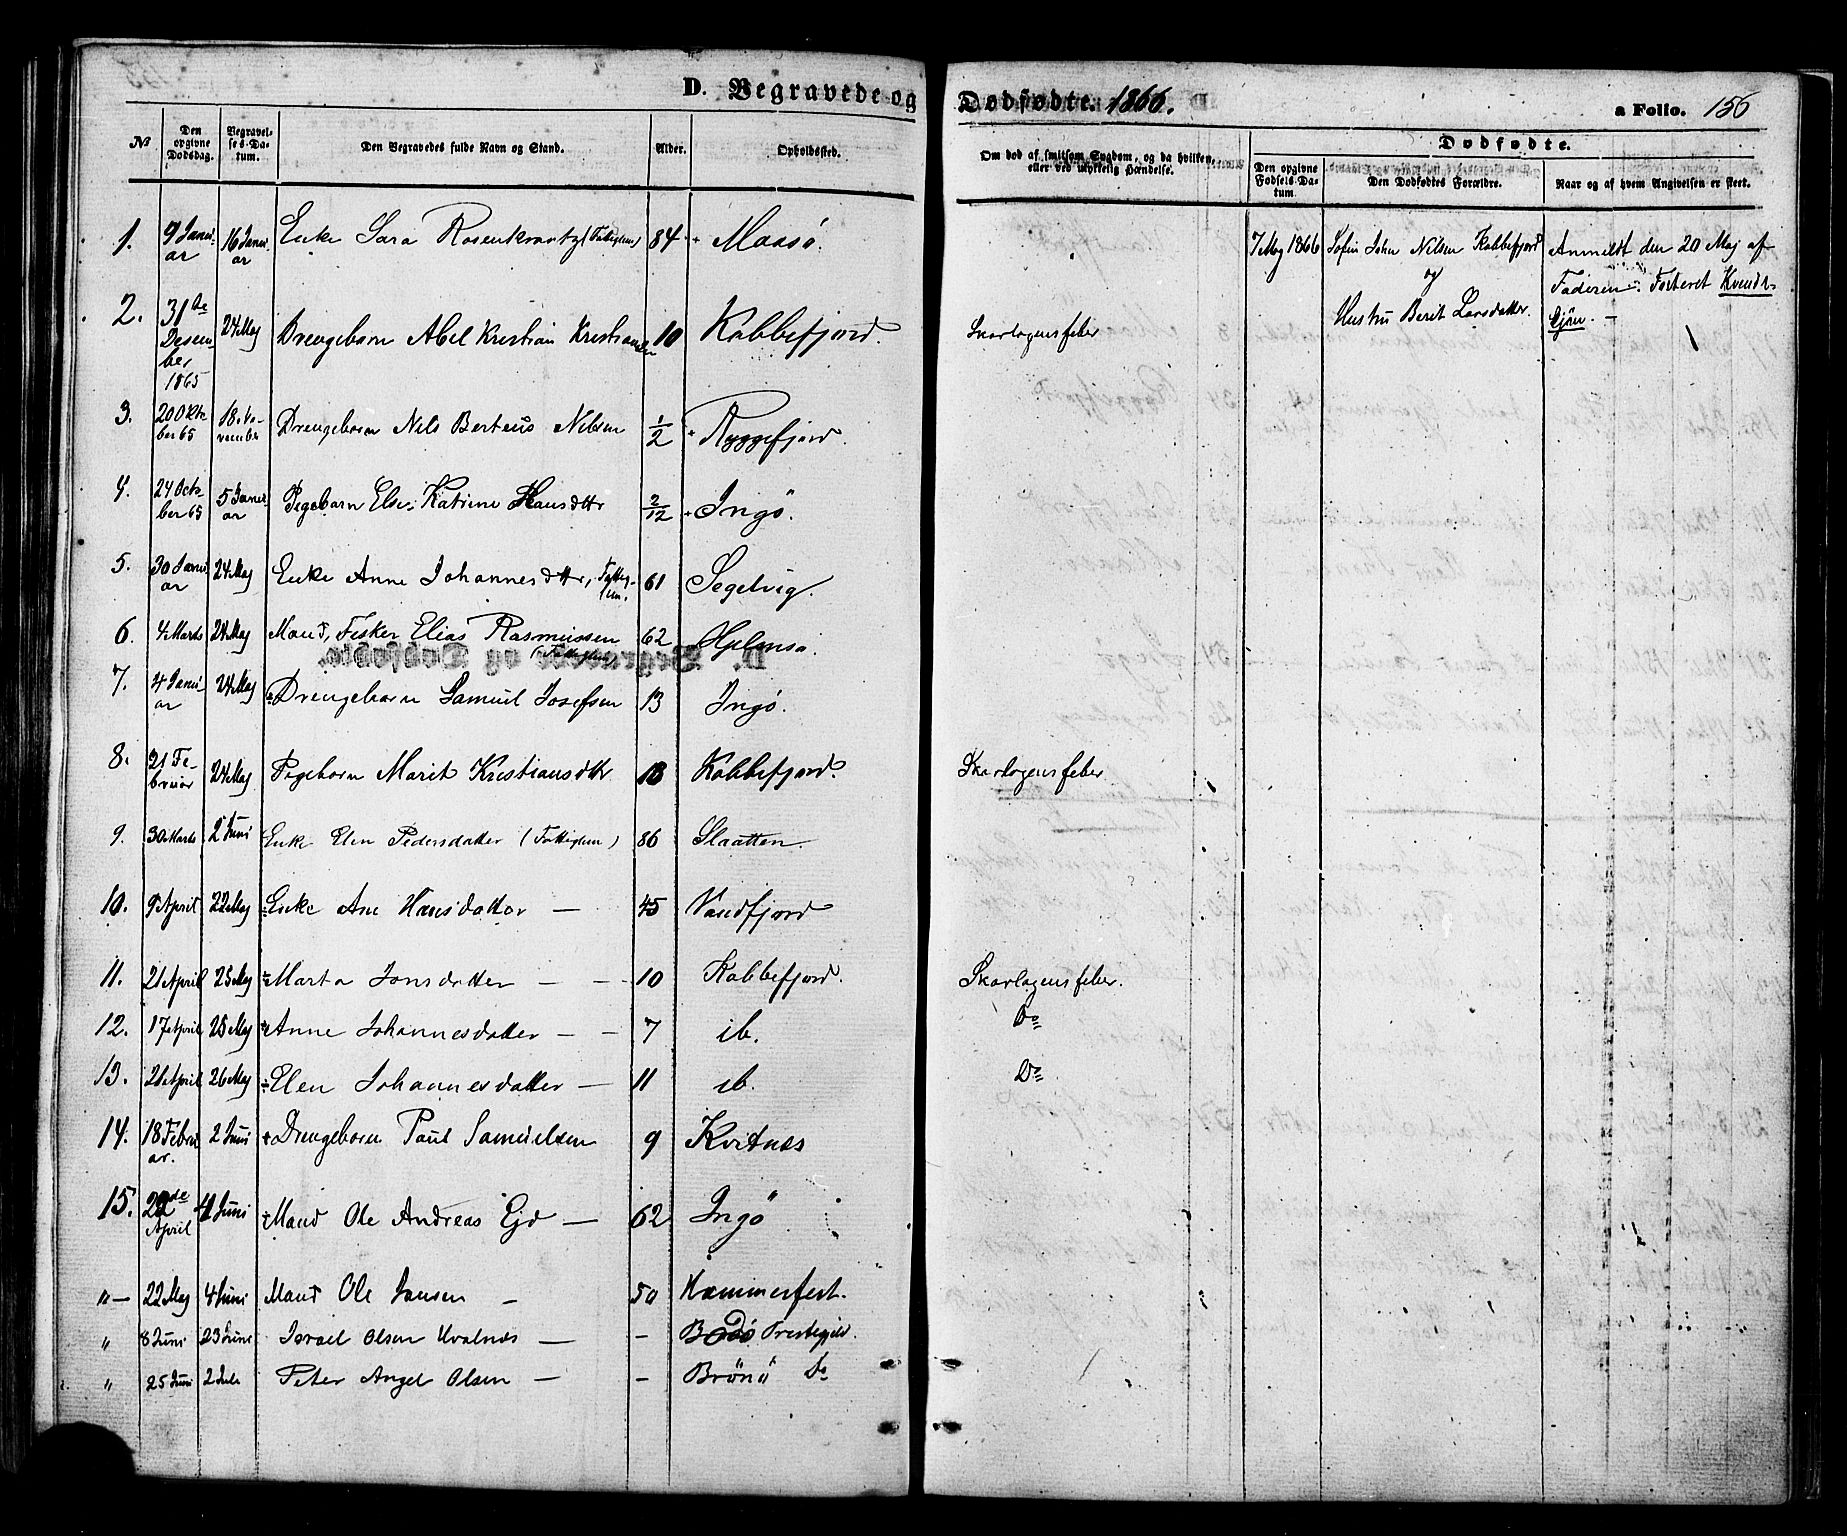 D. Begravede og Dødfødte. 1866.
a Folio. 156
No
Den opgivne Dødsdag.
Begravelses-Datum.
Den Begravedes fulde Navn og Stand.
Alder.
Opholdssted.
Om død af smitsom Sygdom, og da hvilken, eller ved ulykkelig Hændelse.
Dødfødte.
Den opgivne Fødsels-Datum.
Den Dødfødtes Forældre.
Naar og af hvem Angivelsen er skeet.
1. 9 Januar 16 Januar Enke Sara Rosenkrantz (Fattiglem) 84 Maasö.
7 Maj 1866 Søfin John Nilsen Kobbefjord og Hustru Berit Larsdatter. Anmeldt den 20 Maj af Faderen. Fosteret Kvindekjön. —
2. 31te Desember 1865 24 Maj Drengebarn Abel Kristian Kristiansen 10 Kobbefjord. Skarlagensfeber
3. 20 Oktober 65 18. November Drengebarn Nils Berteus Nilsen 1/2 Ryggefjord.
4. 24 October 65 5 Januar Pigebarn Else Katrine Hansdttr 2/12 Ingö.
5. 30 Januar 24 Maj Enke Anne Johannesdttr, Fattiglem. 61 Segelvig.
6. 4 Marts 24 Maj Mand, Fisker Elias Rasmussen (Fattiglem) 62 Hjelmsö.
7. 4 Januar 24 Maj Drengebarn Samuel Josefsen 13 Ingö.
8. 21 Februar 24 Maj Pigebarn Marit Kristiansdttr 18 Kobbefjord. Skarlagensfeber
9. 30 Marts 2 Juni Enke Elen Pedersdatter (Fattiglem) 86 Slaatten.
10. 9 April 22 Maj Enke Ane Hansdatter — 45 Vandfjord
11. 21 April 25 Maj Marta Jonsdatter — - 10 Kobbefjord. Skarlagensfeber.
12. 17 April 25 Maj Anne Johannesdatter — — 7 ib. Do
13. 21 April 26 Maj Elen Johannesdatter — 11 ib. Do
14. 18 Februar. 2 Juni Drengebarn Paul Samuelsen 9 Kvitnæs
15. 22de April 4 Juni Mand Ole Andreas Ejd — 62 Ingö
" — 22 Maj 4 Juni Mand Ole Jansen — 50 Hammerfest.
" 8 Juni 23 Juni Israel Olsen Hvalnæs — - Bodö Prestegjeld.
" 25 Juni 2 Juli Peter Angel Olsen — - Brönö Do